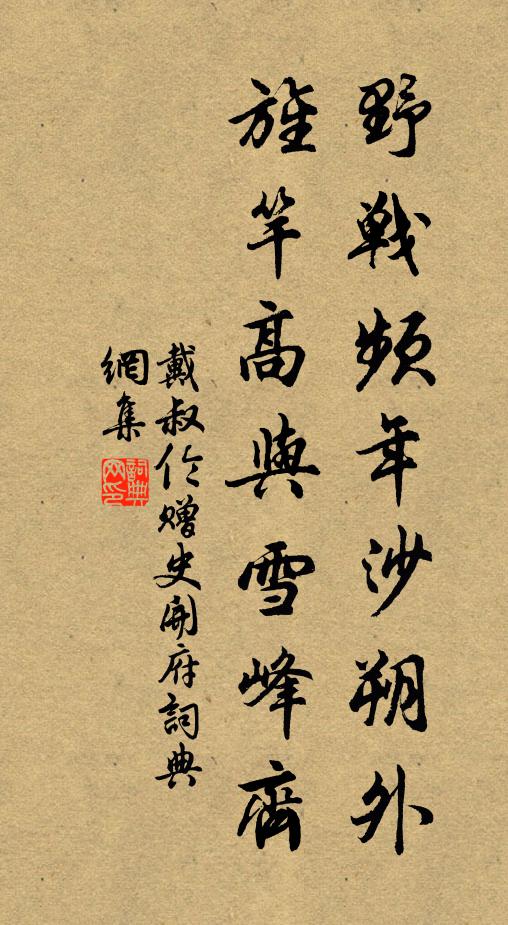 野戰頻年沙朔外
旌竿高與雪峰齊
戴叔倫贈史開府詞典
網集
詞典
網印